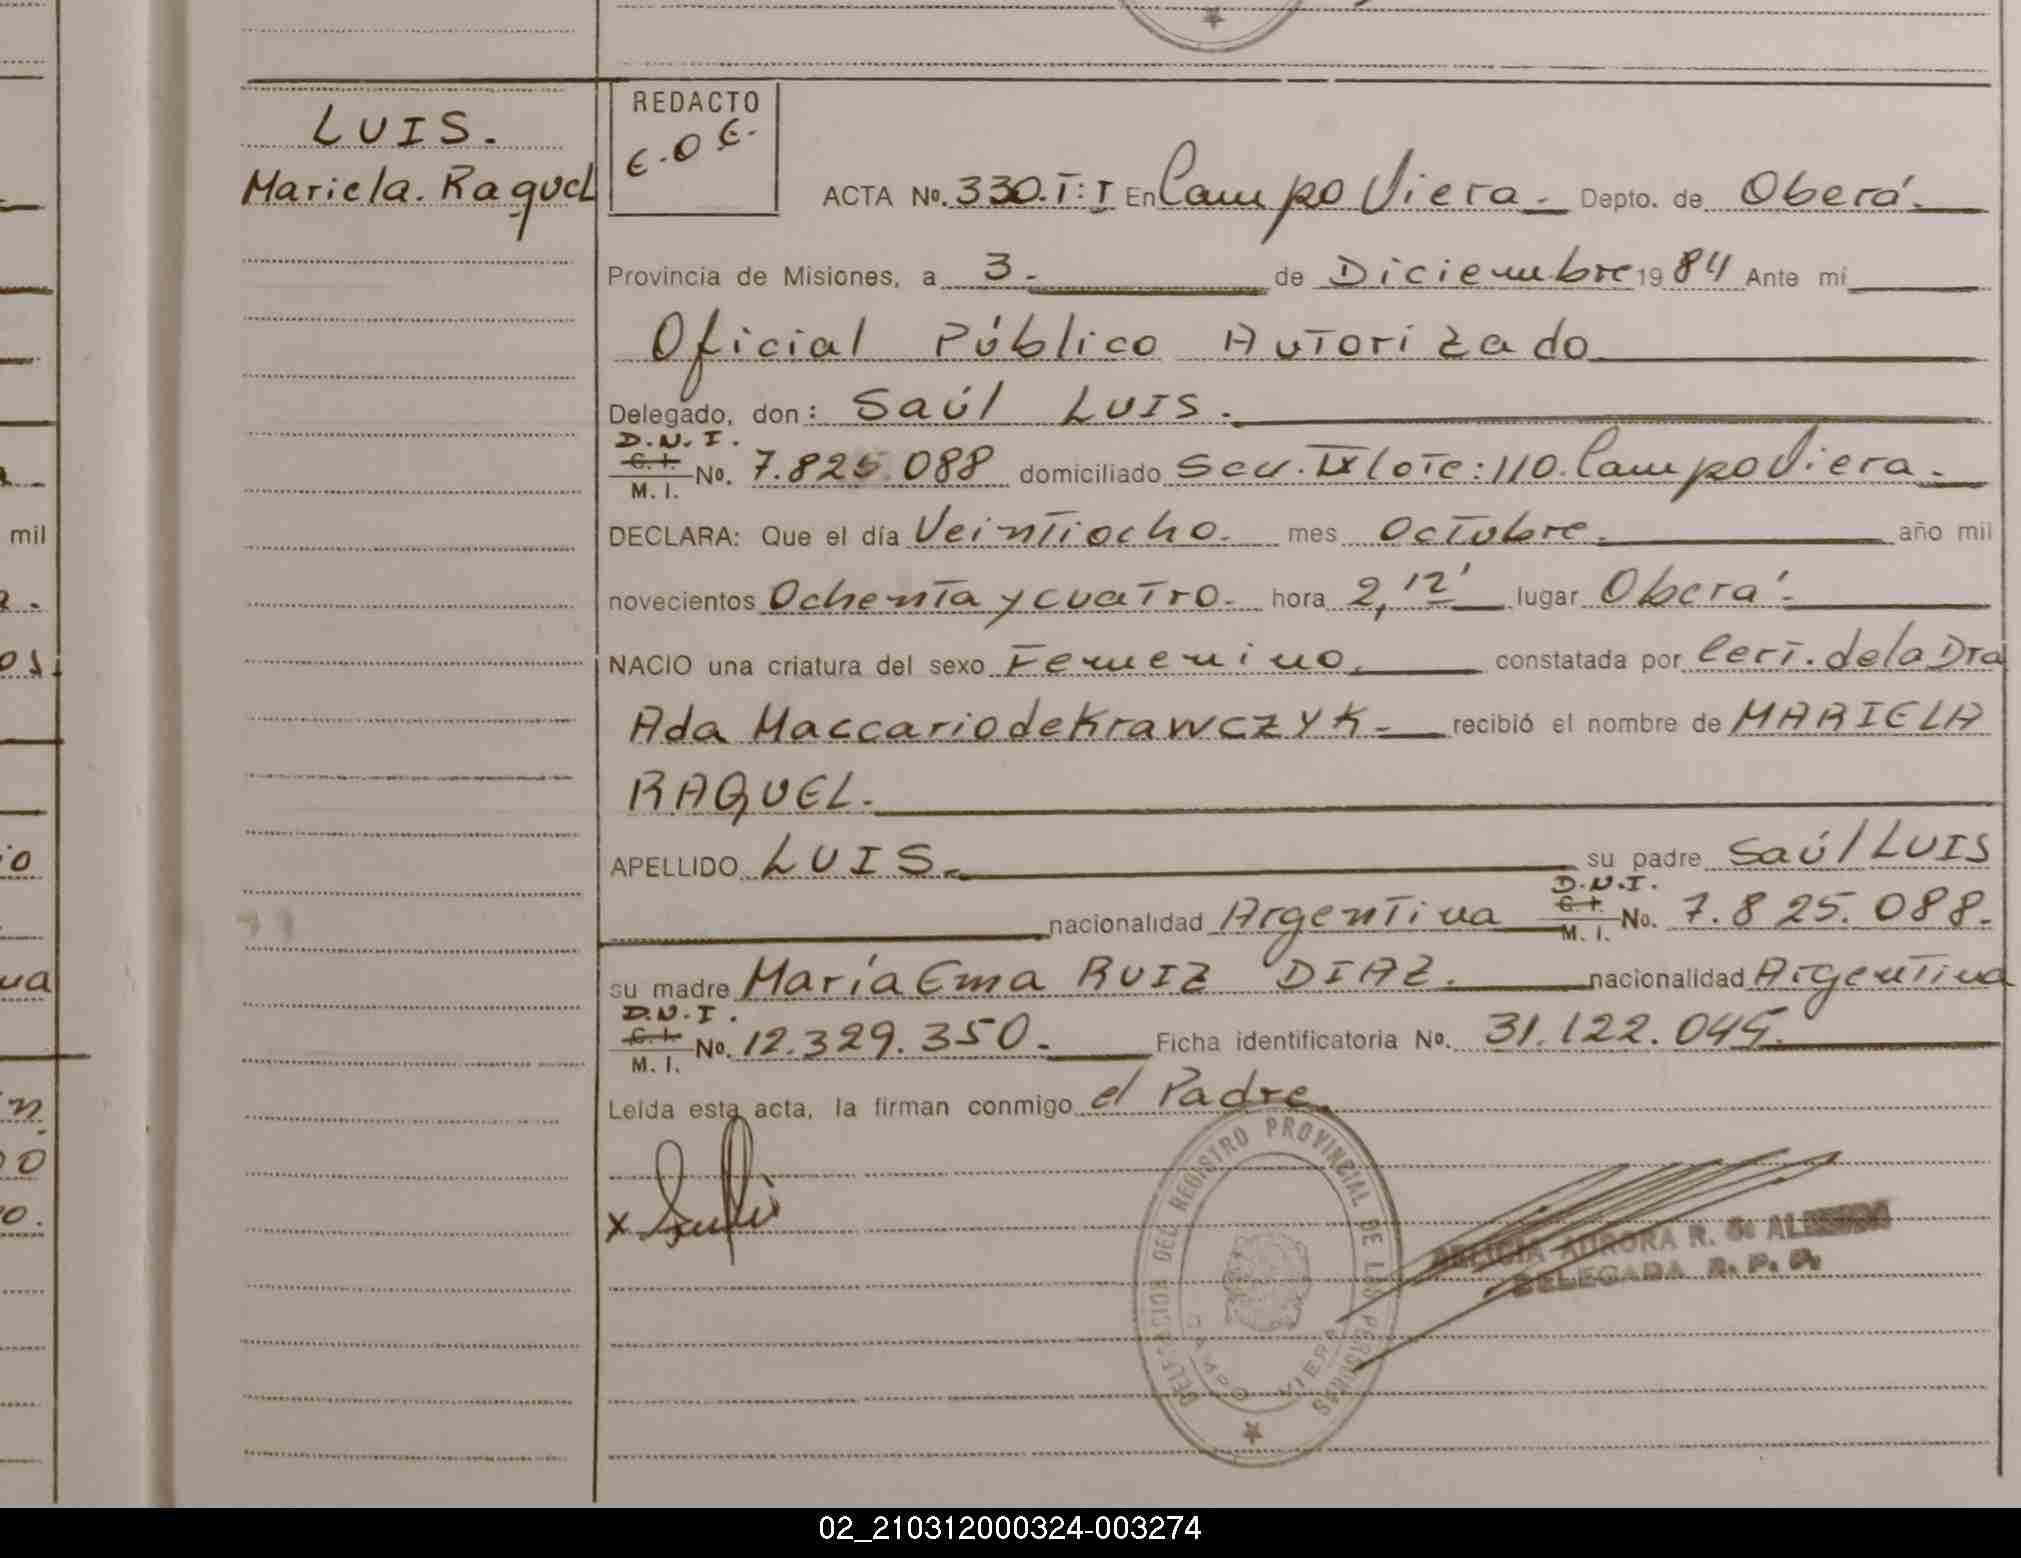 LUIS.
Mariela. Raquel
REDACTO
E.O.E.
ACTA No. 330.T:I En Campo Viera. Depto. de Oberá.
Provincia de Misiones, a 3. de Diciembre 1984 Ante mí
Oficial Público Autorizado
Delegado, don: Saúl LUIS.
D.N.I.
C. I. No. 7.825.088 domiciliado Secc. IX lote: 110. Campo Viera.
M. I.
DECLARA: Que el día Veintiocho. mes Octubre. año mil
novecientos Ochenta y cuatro. hora 2,12' lugar Oberá.
NACIO una criatura del sexo Femenino. constatada por Cert. de la Dra
Ada Maccario de Krawczyk. recibió el nombre de MARIELA
RAQUEL.
APELLIDO LUIS. su padre Saúl LUIS
D.N.I.
nacionalidad Argentina C. I. No. 7.825.088.
M. I.
su madre María Ema RUIZ DIAZ. nacionalidad Argentina
D.N.I.
C. I. No. 12.329.350. Ficha identificatoria No. 31.122.045.
M. I.
Leída esta acta, la firman conmigo el Padre.
x
DELEGACION DEL REGISTRO PROVINCIAL DE LAS PERSONAS
CAMPO VIERA
AURORA R.
DELEGADA R. P. P.
mil
02_210312000324-003274